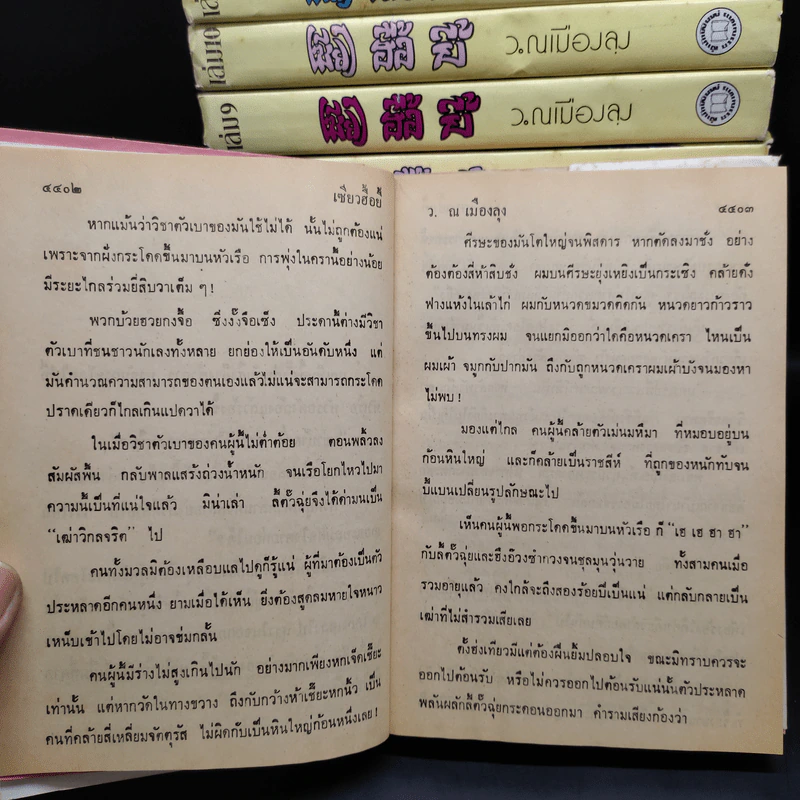 เล่ม 10
ว.ณเมืองลุง
เล่ม 9
ว.ณเมืองลุง
๔๔๐๒
เซียวฮื้อยี้
หากแม้นว่าวิชาตัวเบาของมันใช้ไม่ได้ นั้นไม่ถูกต้องแน่
เพราะจากฝั่งกระโดดขึ้นมาบนหัวเรือ การพุ่งในครานี้อย่างน้อย
มีระยะไกลร่วมยี่สิบวาเต็ม ๆ!
พวกบ้วยฮวยกงจื้อ ซึ่งงั้งจือเซ็ง ประดานี้ต่างมีวิชา
ตัวเบาที่ชนชาวนักเลงทั้งหลาย ยกย่องให้เป็นอันดับหนึ่ง แต่
มันคำนวณความสามารถของตนเองแล้วไม่แน่จะสามารถกระโดด
ปราดเดียวก็ไกลเกินแปดวาได้
ในเมื่อวิชาตัวเบาของคนผู้นี้ไม่ต่ำต้อย ตอนพลิ้วลง
สัมผัสพื้น กลับพาลแสร้งถ่วงน้ำหนัก จนเรือโยกไหวไปมา
ความนี้เป็นที่แน่ใจแล้ว มิน่าเล่า ลี้ตั๊วฉุ่ยจึงได้ด่ามันเป็น
“เฒ่าวิกลจริต” ไป
คนทั้งมวลมิต้องเหลือบแลไปดูก็รู้แน่ ผู้ที่มาต้องเป็นตัว
ประหลาดอีกคนหนึ่ง ยามเมื่อได้เห็น ยิ่งต้องสูดลมหายใจหนาว
เหน็บเข้าไปโดยไม่อาจข่มกลั้น
คนผู้นี้มีร่างไม่สูงเกินไปนัก อย่างมากเพียงหกเจ็ดเชี๊ยะ
เท่านั้น แต่หากวัดในทางขวาง ถึงกับกว้างห้าเชี๊ยะหกนิ้ว เป็น
คนที่คล้ายสี่เหลี่ยมจัตุรัส ไม่ผิดกับเป็นหินใหญ่ก้อนหนึ่งเลย!
ว. ณ เมืองลุง
๔๔๐๓
ศีรษะของมันโตใหญ่จนพิสดาร หากตัดลงมาชั่ง อย่าง
ต้องต้องสี่ห้าสิบชั่ง ผมบนศีรษะยุ่งเหยิงเป็นกระเซิง คล้ายดั่ง
ฟางแห้งในเล้าไก่ ผมกับหนวดขมวดติดกัน หนวดยาวก้าวราว
ขึ้นไปบนทรงผม จนแยกมิออกว่าใดคือหนวดเครา ไหนเป็น
ผมเผ้า จมูกกับปากมัน ถึงกับถูกหนวดเคราผมเผ้าบังจนมองหา
ไม่พบ!
มองแต่ไกล คนผู้นี้คล้ายตัวเม่นมหึมา ที่หมอบอยู่บน
ก้อนหินใหญ่ และก็คล้ายเป็นราชสีห์ ที่ถูกของหนักทับจน
บี้แบนเปลี่ยนรูปลักษณะไป
เห็นคนผู้นี้พอกระโดดขึ้นมาบนหัวเรือ ก็ “เฮ เฮ ฮา ฮา”
กับลี้ตั๊วฉุ่ยและฮึงอ๊วงซำกวงจนชุลมุนวุ่นวาย ทั้งสามคนเมื่อ
รวมอายุแล้ว คงใกล้จะถึงสองร้อยปีเป็นแน่ แต่กลับกลายเป็น
เฒ่าที่ไม่สำรวมเสียเลย
ตั้งฮ่งเทียวมีแต่ต้องฝืนยิ้มปลอบใจ ขณะมิทราบควรจะ
ออกไปต้อนรับ หรือไม่ควรออกไปต้อนรับแน่นั้นตัวประหลาด
พลันผลักลี้ตั๊วฉุ่ยกระดอนออกมา คำรามเสียงก้องว่า